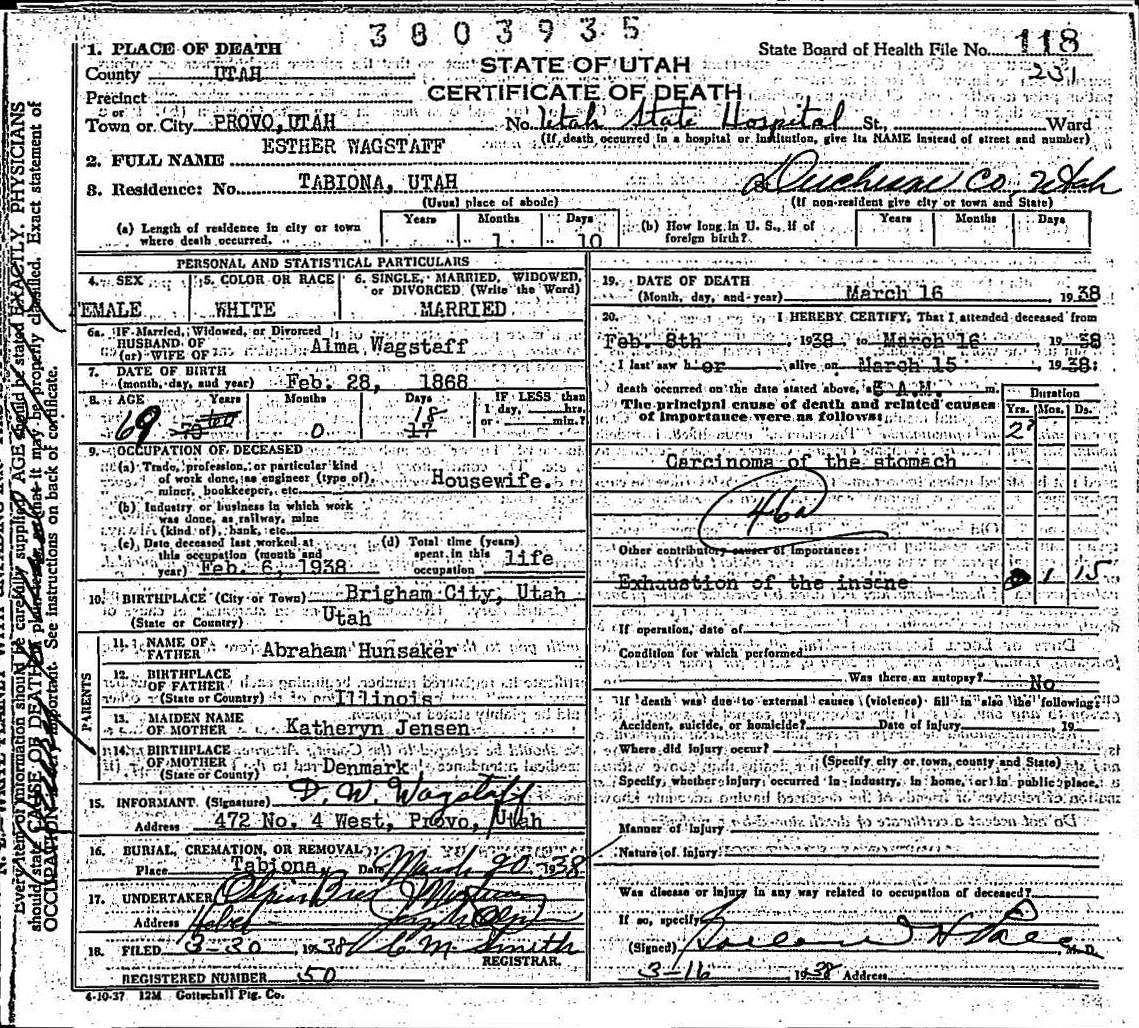 3803935
1. PLACE OF DEATH
State Board of Health File No. 118
County UTAH
STATE OF UTAH
231
Precinct
CERTIFICATE OF DEATH
or
Town or City PROVO, UTAH No. Utah State Hospital St., Ward
(If death occurred in a hospital or institution, give its NAME instead of street and number)
2. FULL NAME ESTHER WAGSTAFF
3. Residence: No. TABIONA, UTAH Duchesne Co, Utah
(Usual place of abode) (If non-resident give city or town and State)
(a) Length of residence in city or town where death occurred. Years Months 1 Days 10
(b) How long in U. S., if of foreign birth? Years Months Days
PERSONAL AND STATISTICAL PARTICULARS
4. SEX EMALE
5. COLOR OR RACE WHITE
6. SINGLE, MARRIED, WIDOWED, or DIVORCED (Write the Word) MARRIED
6a. IF Married, Widowed, or Divorced
HUSBAND OF
(or) WIFE OF Alma Wagstaff
7. DATE OF BIRTH
(month, day, and year) Feb. 28, 1868
8. AGE Years 69 Months 0 Days 18 17 IF LESS than 1 day, hrs. or min.?
9. OCCUPATION OF DECEASED
(a) Trade, profession, or particular kind
of work done, as engineer (type of),
miner, bookkeeper, etc. Housewife.
(b) Industry or business in which work
was done, as railway, mine
(kind of), bank, etc.
(c) Date deceased last worked at
this occupation (month and
year) Feb. 6, 1938
(d) Total time (years)
spent in this
occupation life
10. BIRTHPLACE (City or Town) Brigham City, Utah
(State or Country) Utah
PARENTS
11. NAME OF
FATHER Abraham Hunsaker
12. BIRTHPLACE
OF FATHER
(State or Country) Illinois
13. MAIDEN NAME
OF MOTHER Katheryn Jensen
14. BIRTHPLACE
OF MOTHER
(State or County) Denmark
15. INFORMANT (Signature) D. W. Wagstaff
Address 472 No. 4 West, Provo, Utah
16. BURIAL, CREMATION, OR REMOVAL
Place Tabiona, Date March 20 1938
17. UNDERTAKER Olpin Bros
Address Heber
18. FILED 3-30 1938 C M Smith
REGISTRAR.
REGISTERED NUMBER 50
4-10-37 12M Gottschall Ptg. Co.
19. DATE OF DEATH
(Month, day, and year) March 16, 1938
20. I HEREBY CERTIFY, That I attended deceased from
Feb. 8th 1938, to March 16, 1938
I last saw her alive on March 15, 1938;
death occurred on the date stated above, at 5 A.M. m.
The principal cause of death and related causes
of importance were as follows:
Duration
Yrs. Mos. Ds.
2?
Carcinoma of the stomach
46a
Other contributory causes of importance:
Exhaustion of the insane 1 15
If operation, date of
Condition for which performed
Was there an autopsy? No
If death was due to external causes (violence) fill in also the following:
Accident, suicide, or homicide? Date of injury 19
Where did injury occur?
(Specify city or town, county and State)
Specify, whether injury occurred in industry, in home, or in public place.
Manner of injury
Nature of injury
Was disease or injury in any way related to occupation of deceased?
If so, specify
(Signed) M. D.
3-16 1938 Address
Every item of information should be carefully supplied. AGE should be stated EXACTLY. PHYSICIANS
should state CAUSE OF DEATH in plain terms, so that it may be properly classified. Exact statement of
OCCUPATION is very important. See instructions on back of certificate.